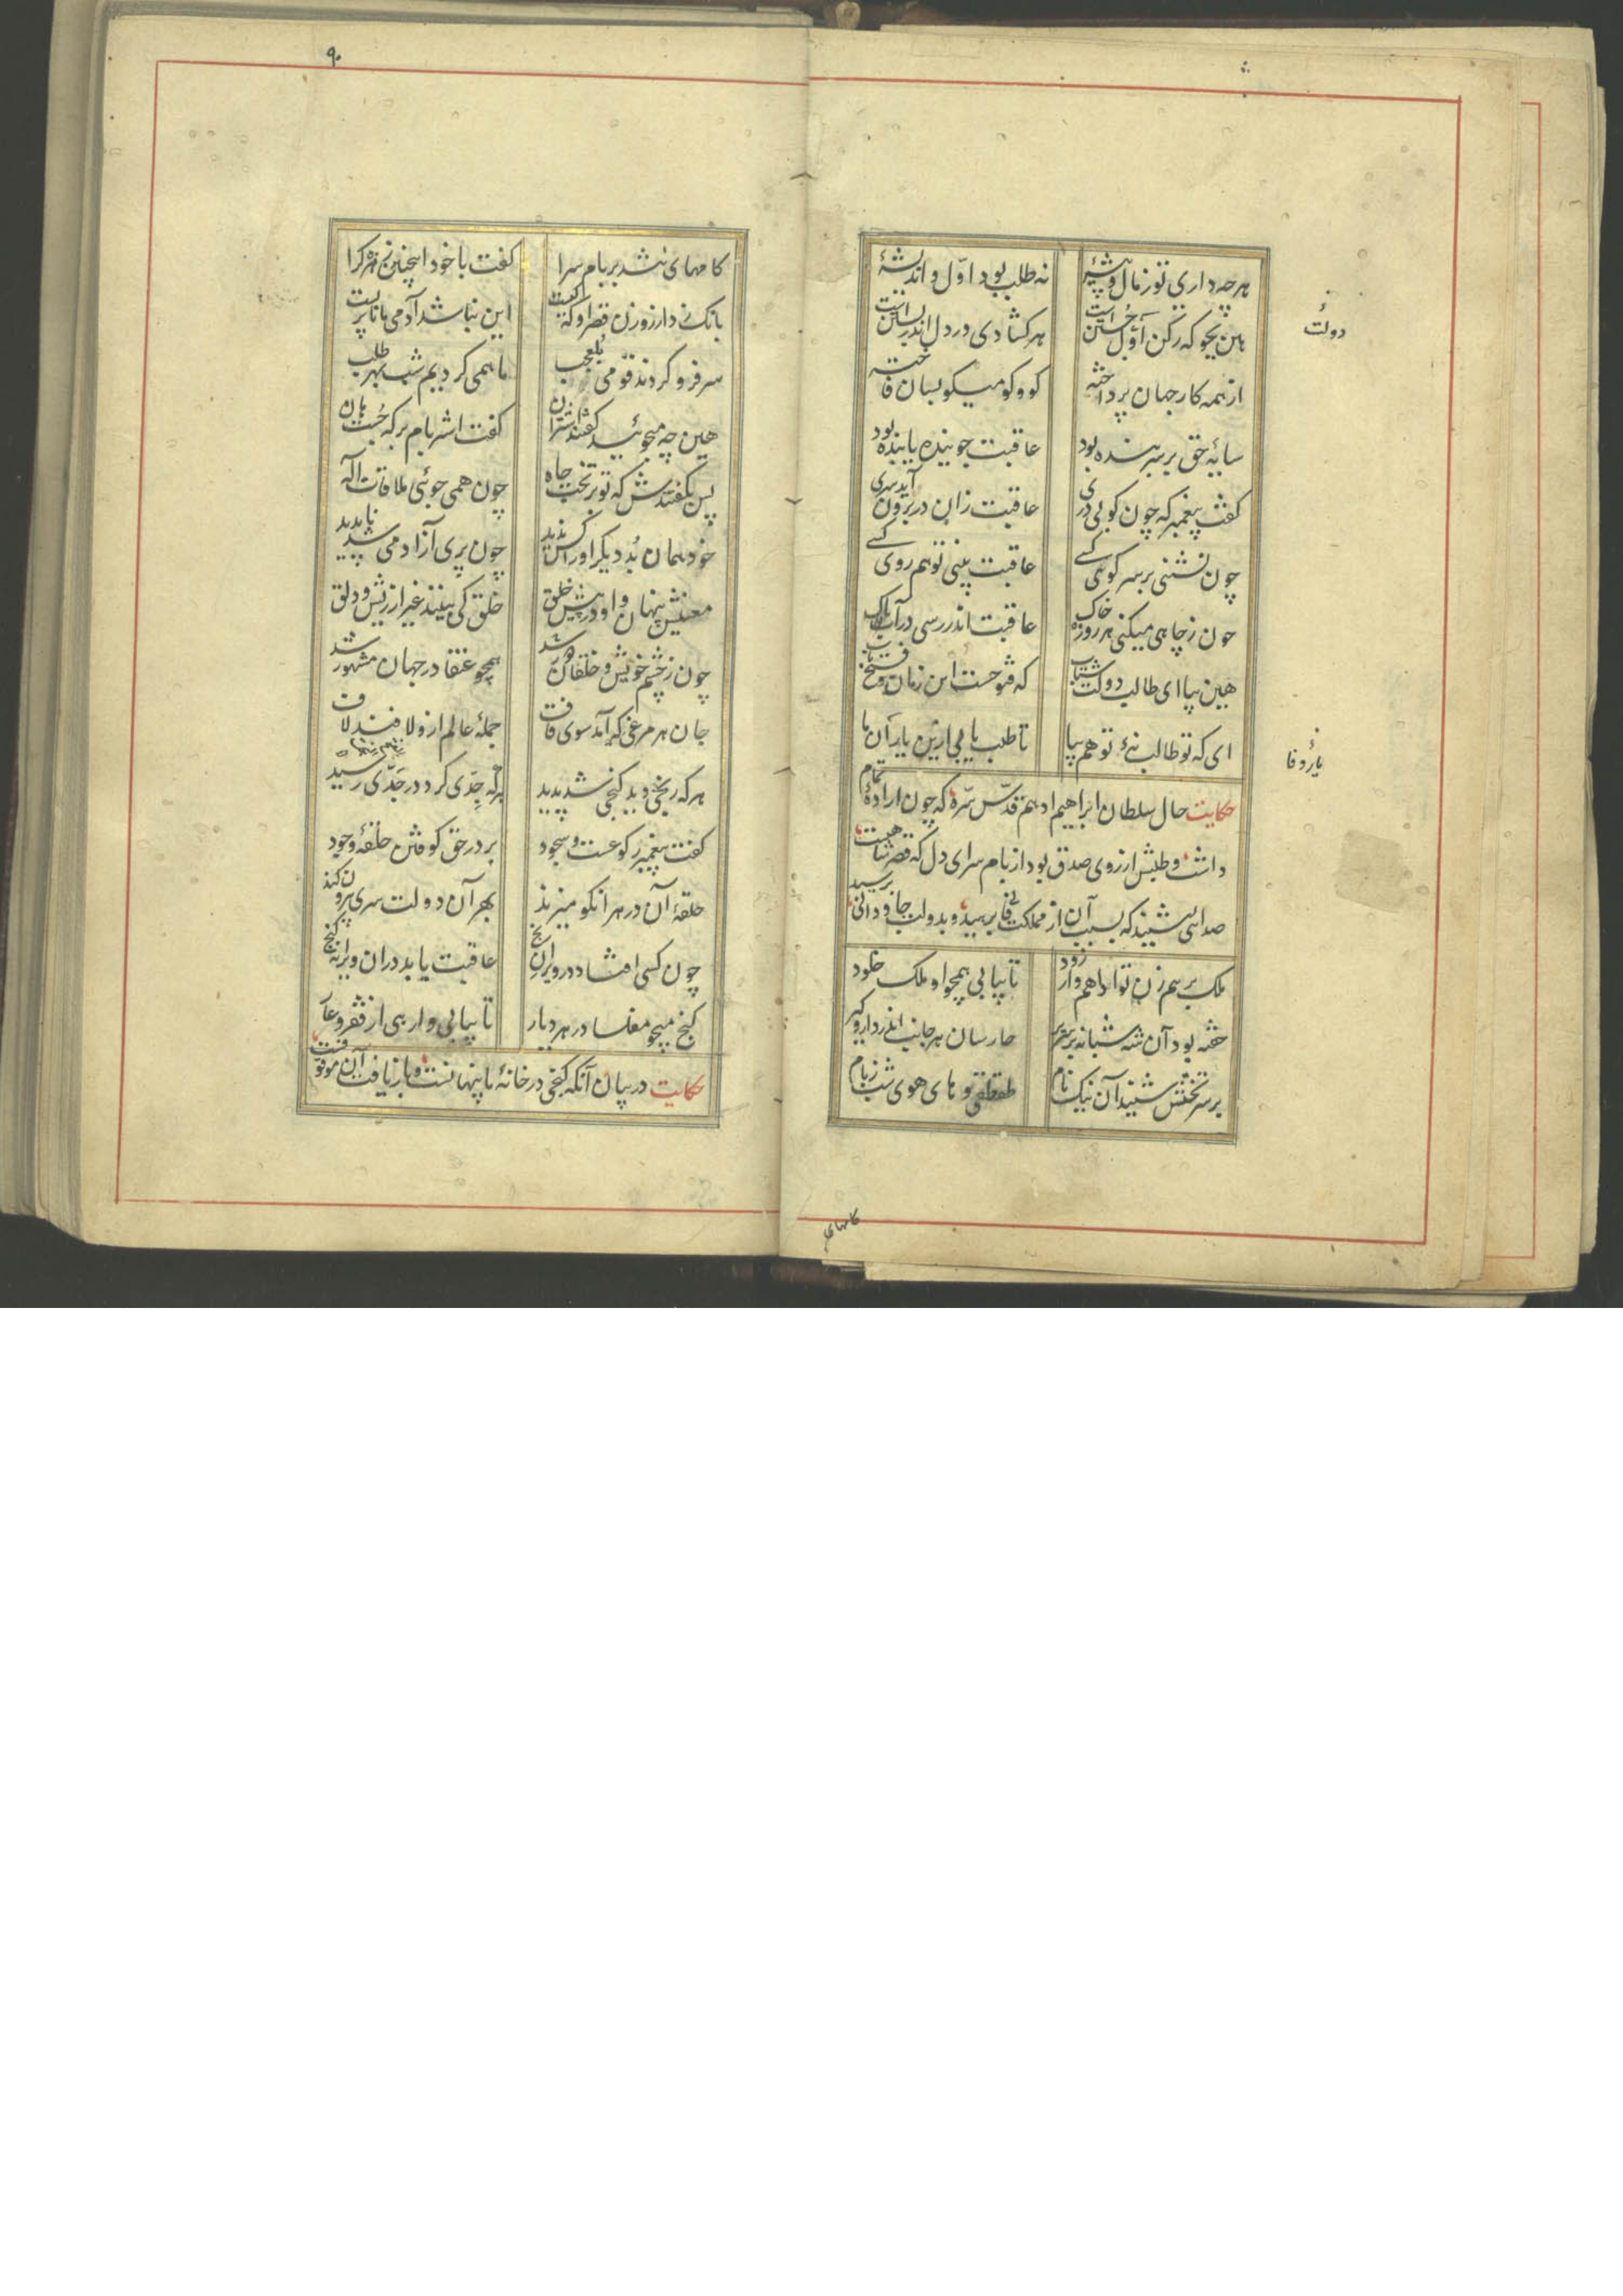 هر چه داری تو ز مال و پیشهٔ نه طلب بود اوّل و اندیشهٔ
هین بجو که رکن دولت جستن است هر گشادی در دل اندر بستن است
از همه کار جهان پرداخته کو و کو میگو بسان فاخته
سایهٔ حق بر سر بنده بود عاقبت جوینده یابنده بود
گفت پیغمبر که چون کوبی دری عاقبت زان در برون آید سری
چون نشینی بر سر کوی کسے عاقبت بینی تو هم روی کسے
چون ز چاهی میکنی هر روز خاک عاقبت اندر رسی در آب پاک
هین بیا ای طالب دولت شتاب که فتوحست این زمان و فتح باب
ای که تو طالب نهٔ تو هم بیا تا طلب یابی ازین یار
حکایت حال سلطان ابراهیم ادهم قدّس سّره که چون ارادهٔ تمام
داشت و طلبش از روی صدق بود از بام سرای دل که قصر شاهیست
صدایی شنید که بسبب آن از مملکت فانی برهید و بدولت جاودانی برسید
ملک برهم زن تو ادهم وار زود تا بیابی همچو او ملک خلود
خفته بود آن شه شبانه بر سریر حارسان هر جانب اندر دار و گیر
بر سر تختش شنید آن نیک نام طقطقی و های هوی شب ز بام
دولت
یار وفا
کامهای
۹۰
کامهای تند بر بام سرا گفت با خود اینچنین زهره کرا
بانگ زد از روزن قصر او که کیست این نباشد آدمی مانا پریست
سر فرو کردند قومی بلعجب ما همی گردیم شب بهر طلب
هین چه میجوئید گفتند اشتران گفت اشتر بام بر که جست هان
پس بگفتندش که تو بر تخت جاه چون همی جوئی ملاقات اله
خود همان بد دیگر اورا کس ندید چون پری از آدمی شد ناپدید
معنیش پنهان و او در پیش خلق خلق کی بینند غیر از ریش و دلق
چون ز چشم خویش و خلقان دور شد همچو عنقا در جهان مشهور شد
جان هر مرغی که آمد سوی قاف جملهٔ عالم ازو لافند لاف
هر که رنجی دید گنجی شد پدید هر که جِدّی کرد در جَدّی رسید
گفت پیغمبر رکوعست و سجود بر در حق کوفتن حلقهٔ وجود
حلقهٔ آن در هر آنکو میزند بهر آن دولت سری بیرون کند
چون کسی افتاد در ویران گنج عاقبت یابد دران ویرانه گنج
گنج میجو مفلسا در هر دیار تا بیابی وارهی از فقر و عار
حکایت در بیان آنکه گنجی در خانهٔ ما پنهانست و باز یافت آن موقوفست